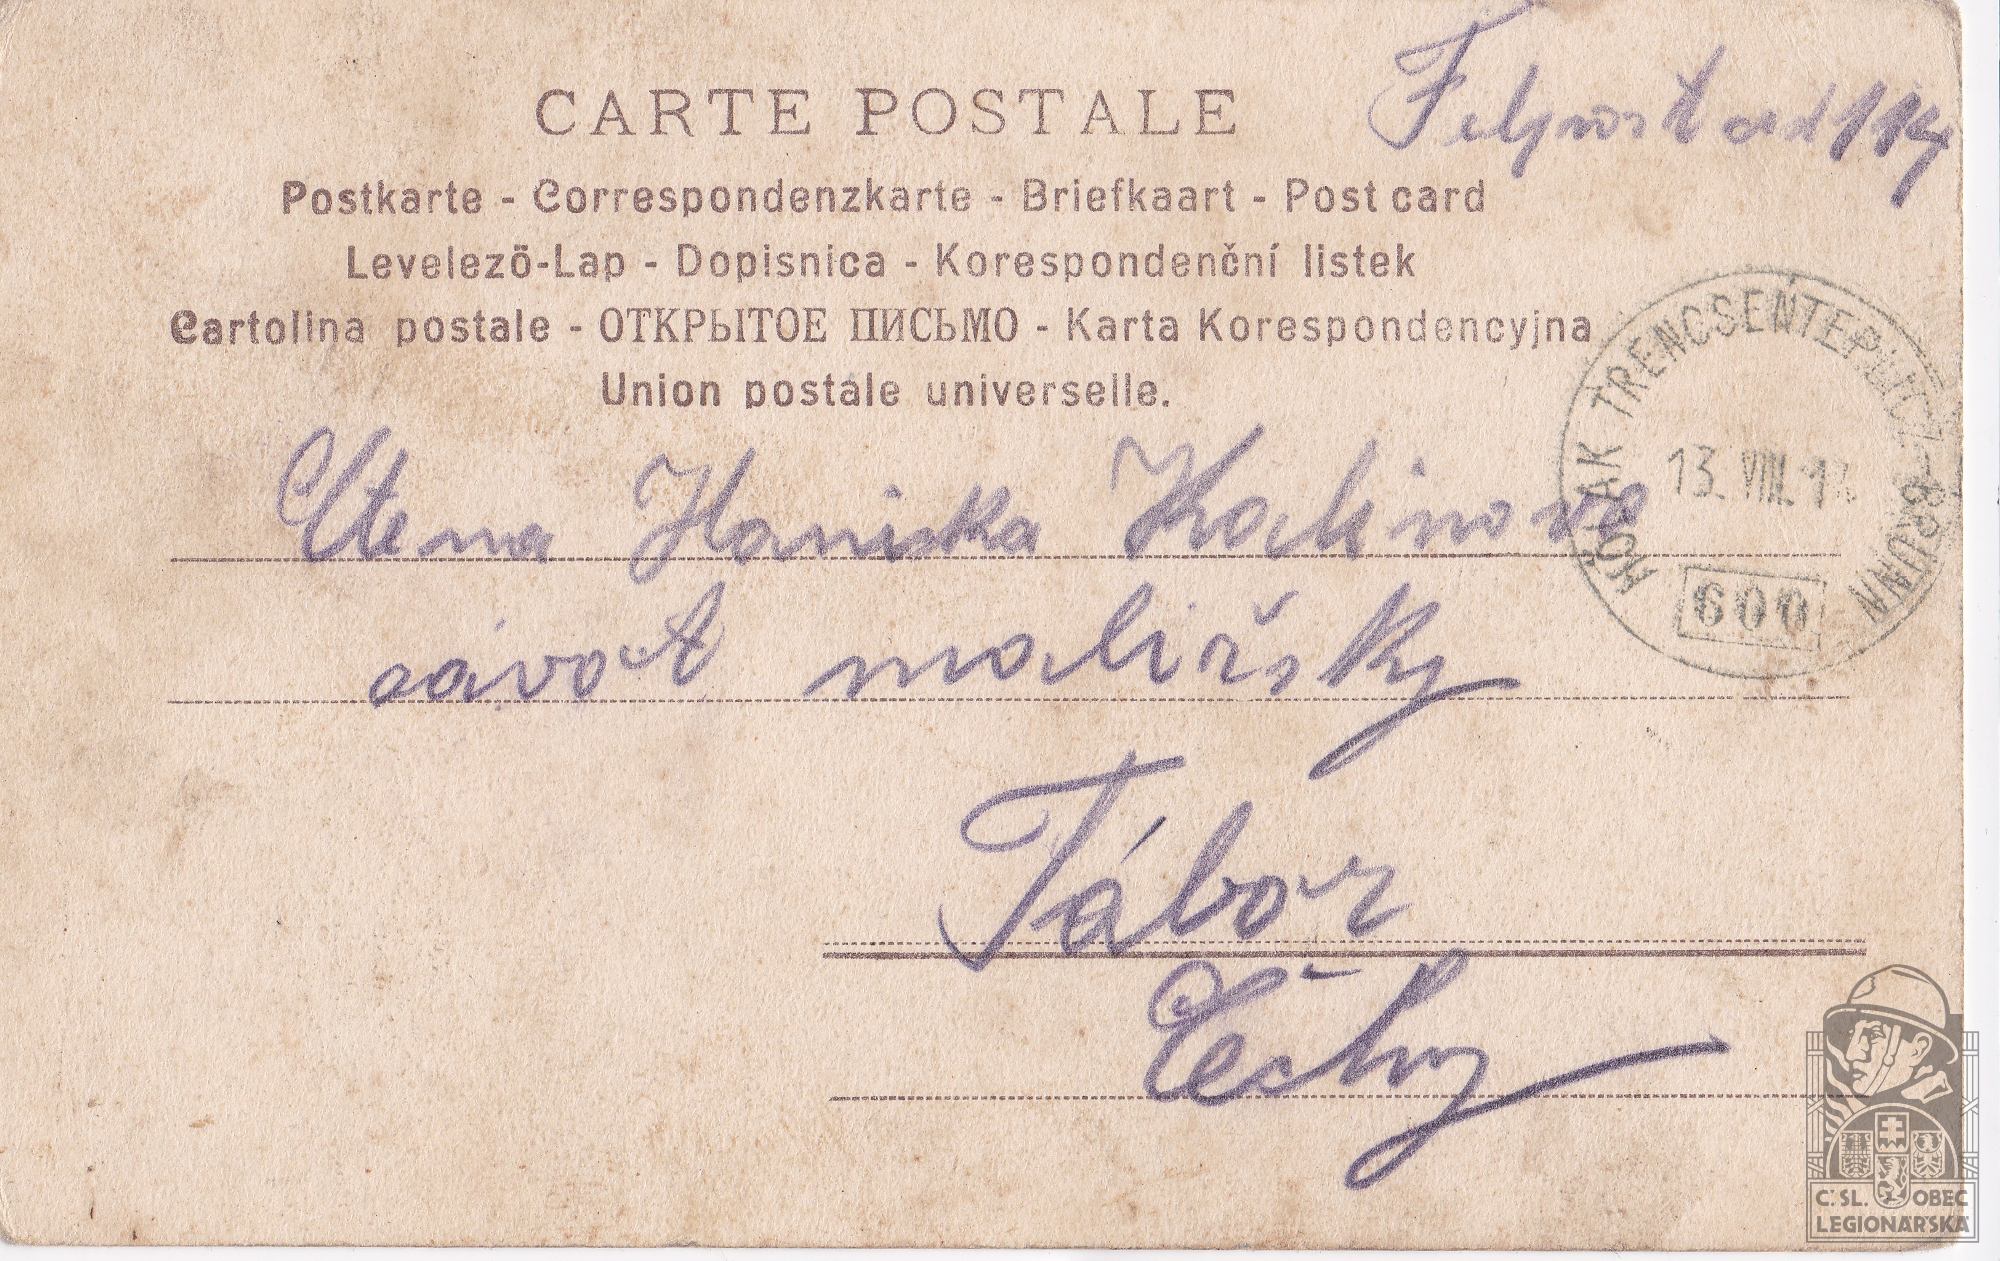 CARTE POSTALE
Postkarte - Correspondenzkarte - Briefkaart - Post card
Levelezö-Lap - Dopisnica - Korespondenční listek
Cartolina postale - ОТКРЫТОЕ ПИСЬМО - Karta Korespondencyjna
Union postale universelle.
TRENCSÉNTEPLICZ-BRÜNN
13. VIII. 1
600
Haniska Kalinova
závot malířsky
Tábor
Čechy
Č.SL. OBEC
LEGIONÁŘSKÁ